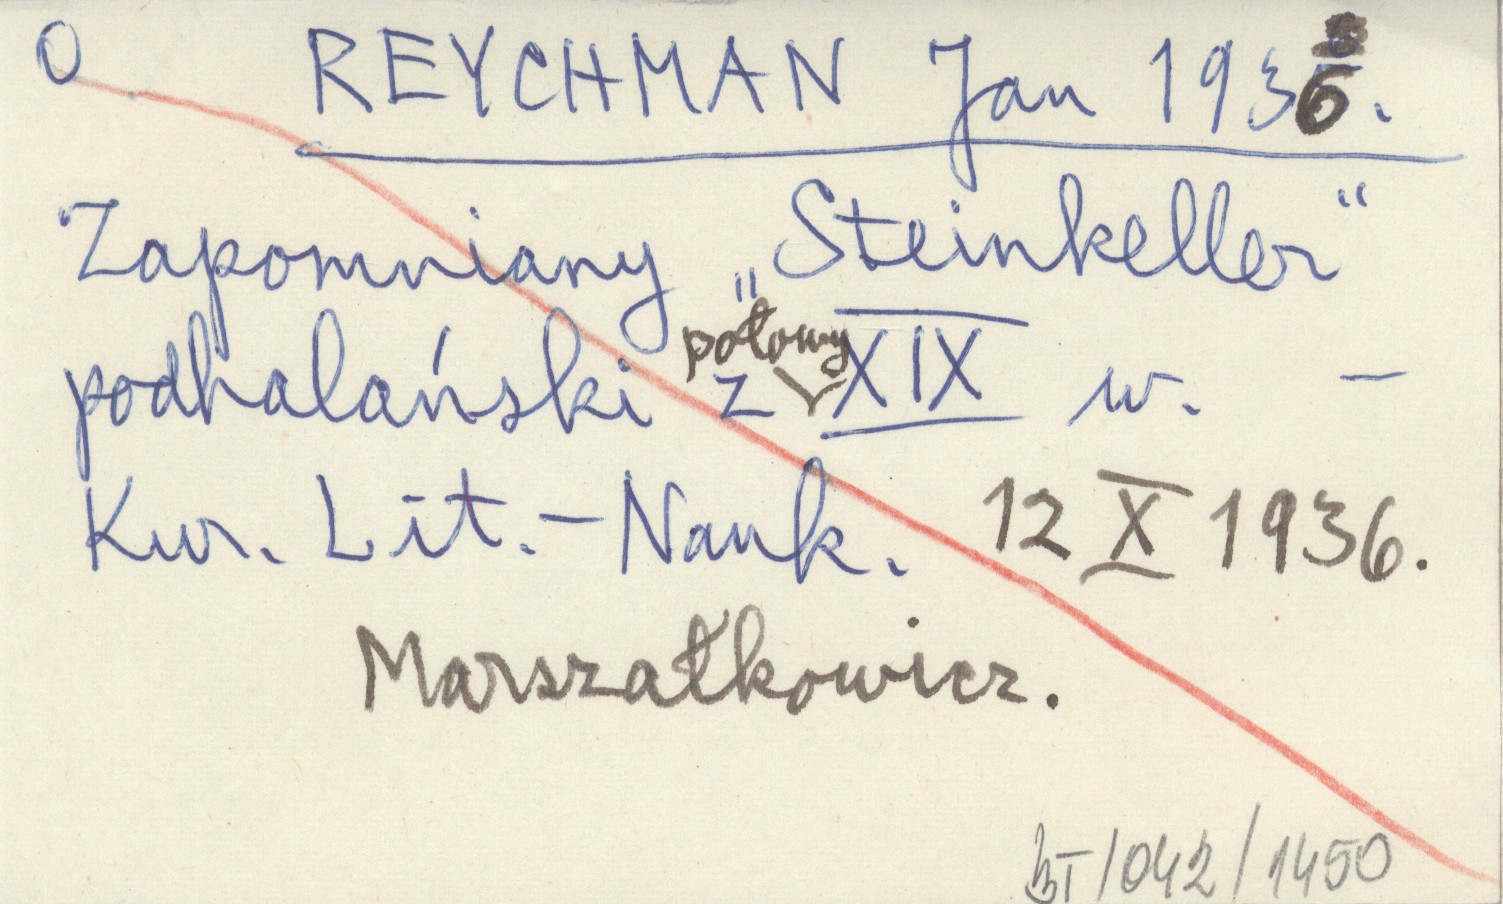 0 REYCHMAN Jan 1936.
Zapomniany „Steinkeller“
podhalański z połowy XIX w. –
Kur. Lit.-Nauk. 12 X 1936.
Marszałkowicz.
/042/1450